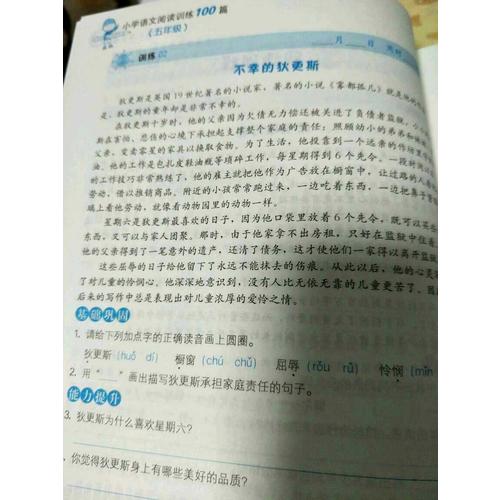 小学语文阅读训练100篇
（五年级）
训练02
月 日
不幸的狄更斯
狄更斯是英国19世纪著名的小说家，著名的小说《雾都孤儿》就是他的
是，狄更斯的童年却是非常不幸的。
在狄更斯十岁时，他的父亲因为欠债无力偿还被关进了负债者监狱，小小
斯在害怕、悲伤的心境下承担起支撑整个家庭的责任：照顾幼小的弟弟和妹
父亲、变卖零星的家具以换取食物。为了生活，他投靠到一个远亲的作坊里
油。他的工作是包扎皮鞋油瓶等琐碎工作，每星期得到6个先令。一段时
的工作技巧非常熟练了，他的雇主就把他作为广告放在橱窗中，让过路的人看
劳动，借以推销商品。附近的小孩常常跑过来，一边吃着东西，一边把鼻子
璃上看他劳动，就像看动物园里的动物一样。
星期六是狄更斯最喜欢的日子，因为他口袋里放着6个先令，既可以买
东西，又可以与家人团聚。那时，由于他家拿不出房租，只好在监狱中住着
他的父亲得到了一笔意外的遗产，还清了债务，这才使他们一家得以离开监
这些屈辱的日子给他留下了永远不能抹去的伤痕。从此以后，他的心灵
了对儿童的怜悯心。他深深地意识到，没有人比无依无靠的儿童更苦了。因
后来的写作中总是表现出对儿童浓厚的爱怜之情。
基础巩固
1. 请给下列加点字的正确读音画上圆圈。
狄更斯（huǒ dí） 橱窗（chú chǔ） 屈辱（rǒu rǔ） 怜悯（mǐn
2. 用“ ”画出描写狄更斯承担家庭责任的句子。
能力提升
3. 狄更斯为什么喜欢星期六？
你觉得狄更斯身上有哪些美好的品质？